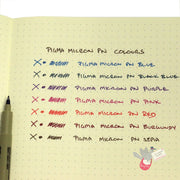 PIGMA MICRON PN COLOURS
PIGMA MICRON PN BLUE
PIGMA MICRON PN BLACK BLUE
PIGMA MICRON PN PURPLE
PIGMA MICRON PN PINK
PIGMA MICRON PN RED
PIGMA MICRON PN BURGUNDY
PIGMA MICRON PN SEPIA